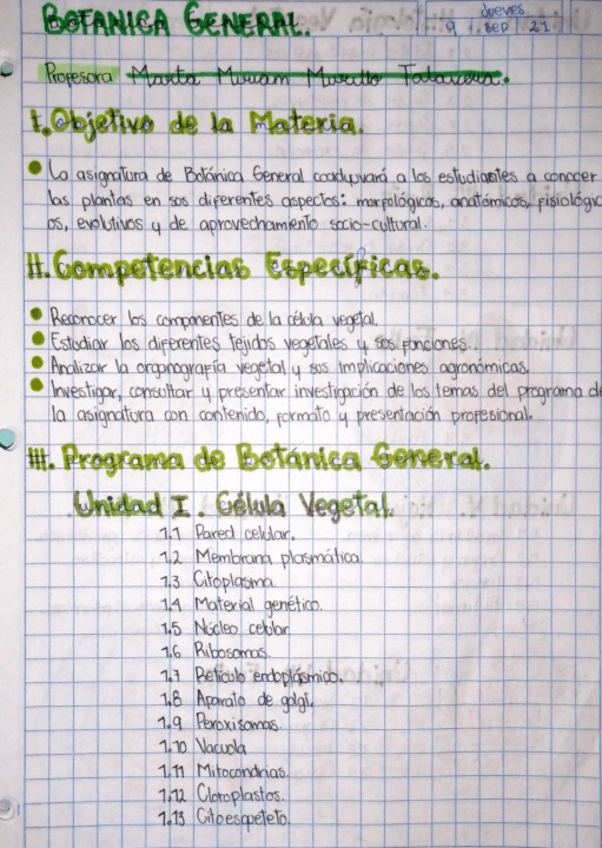 BOTANICA GENERAL.
Jueves
9 sep 21
Profesora Marta Miriam Murillo Talavera.
I. Objetivo de la Materia.
La asignatura de Botánica General coadyuvará a los estudiantes a conocer
las plantas en sus diferentes aspectos: morfológicos, anatómicos, fisiológic
os, evolutivos y de aprovechamiento socio-cultural.
II. Competencias Específicas.
Reconocer los componentes de la célula vegetal.
Estudiar los diferentes tejidos vegetales y sus funciones.
Analizar la organografía vegetal y sus implicaciones agronómicas.
Investigar, consultar y presentar investigción de los temas del programa de
la asignatura con contenido, formato y presentación profesional.
III. Programa de Botánica General.
Unidad I. Célula Vegetal.
1.1 Pared celular.
1.2 Membrana plasmática.
1.3 Citoplasma.
1.4 Material genético.
1.5 Núcleo celular
1.6 Ribosomas.
1.7 Retículo endoplásmico.
1.8 Aparato de golgi.
1.9 Peroxisomas.
1.10 Vacuola
1.11 Mitocondrias.
1.12 Cloroplastos.
1.13 Citoesqueleto.